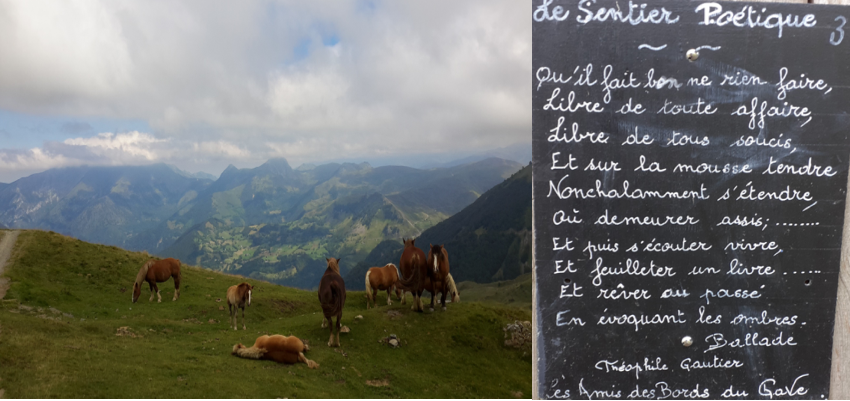 Le Sentier Poétique 3
Qu'il fait bon ne rien faire,
Libre de toute affaire,
Libre de tous soucis,
Et sur la mousse tendre
Nonchalamment s'étendre,
Où demeurer assis; ........
Et puis s'écouter vivre,
Et feuilleter un livre ......
Et rêver au passé
En évoquant les ombres.
Ballade
Théophile Gautier
Les Amis des Bords du Gave.